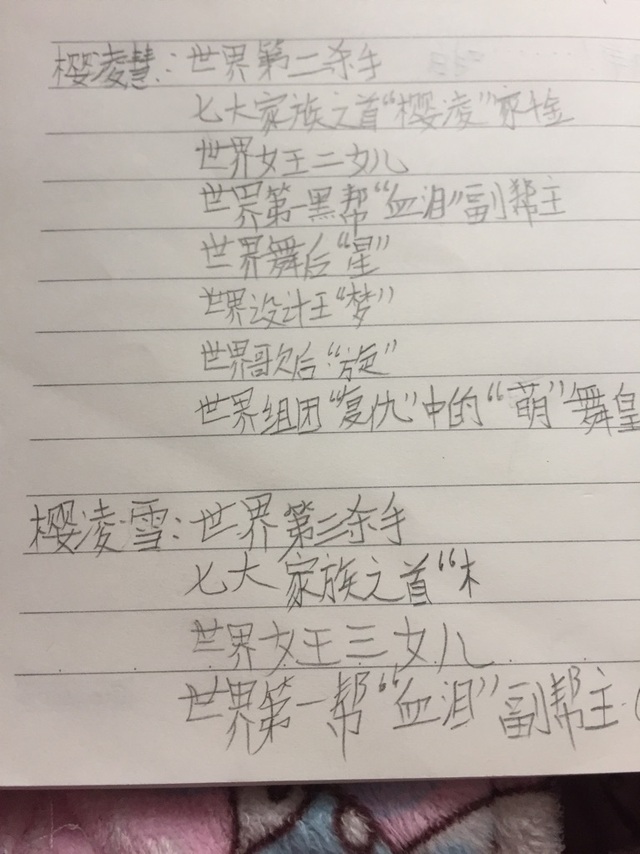 樱凌慧：世界第二杀手
七大家族之首“樱凌”家
世界女王二女儿
世界第一黑帮“血泪”副帮主
世界舞后“星”
世界设计王“梦”
世界歌后“旋”
世界组团“复仇”中的“萌”舞皇
樱凌雪：世界第三杀手
七大家族之首“木
世界女王三女儿
世界第一帮“血泪”副帮主